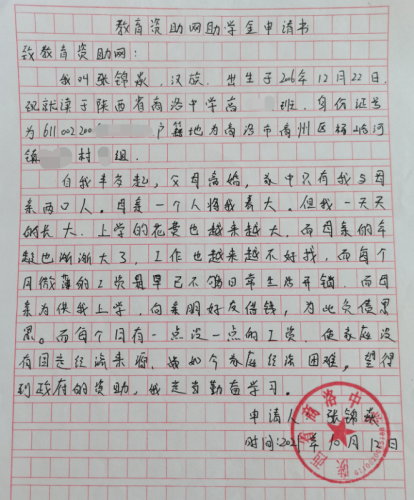 教育资助网助学金申请书
致教育资助网：
我叫张锦焱，汉族，出生于2006年12月22日，
现就读于陕西省商洛中学高 班，身份证号
为611002200 户籍地为商洛市商州区杨峪河
镇 村 组。
自我半岁起，父母离婚，家中只有我与母
亲两口人。母亲一个人将我养大。但我一天天
的长大，上学的花费也越来越大，而母亲的年
龄也渐渐大了，工作也越来越不好找，而每个
月微薄的工资是早已不够日常生活开销，而母
亲为供我上学，向亲朋好友借钱，为此负债累
累。而每个月有一点没一点的工资，使家庭没
有固定经济来源，致如今家庭经济困难，望得
到政府的资助，我定当勤奋学习。
申请人 张锦焱
时间:202 年10月12日
陕西省商洛中学